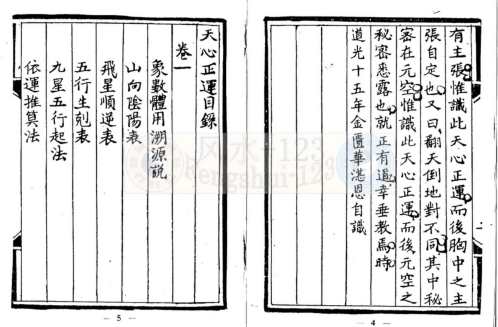 有主張惟識此天心正運而後胸中之主
張自定也又曰翻天倒地對不同其中秘
密在元空惟識此天心正運而後元空之
秘密悉露也就正有道幸垂教焉時
道光十五年金匱華湛恩自識
— 4 —
天心正運目錄
卷一
象數體用溯源説
山向陰陽表
飛星順逆表
五行生剋表
九星五行起法
依運推算法
— 5 —
风水-123
fengshui-123